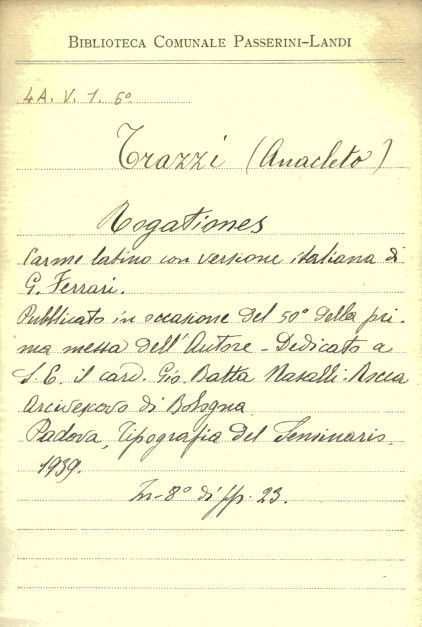 BIBLIOTECA COMUNALE PASSERINI-LANDI
4A. V. 1. 6º
Trazzi (Anacleto)
Rogationes
Carme latino con versione italiana di
G. Ferrari.
Pubblicato in occasione del 50º della pri-
ma messa dell'Autore - Dedicato a
S. E. il card. Gio. Batta Nasalli-Rocca
Arcivescovo di Bologna
Padova, Tipografia del Seminario.
1939.
In-8º di pp. 23.